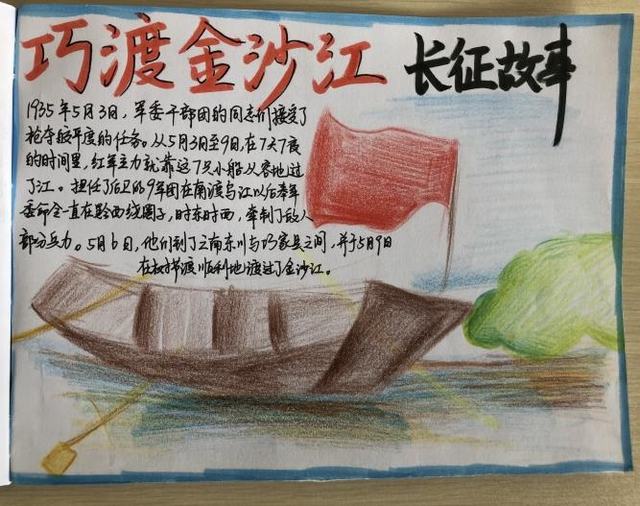 巧渡金沙江 长征故事
1935年5月3日，军委干部团的同志们接受了
抢夺皎平度的任务。从5月3日至9日，在7天7夜
的时间里，红军主力就靠这7只小船从容地过
了江。担任了后卫的9军团在南渡乌江以后奉军
委命令一直在黔西绕圈子，时东时西，牵制了敌人
部分兵力。5月6日，他们到了云南东川与巧家县之间，并于5月9日
在树节渡顺利地渡过了金沙江。